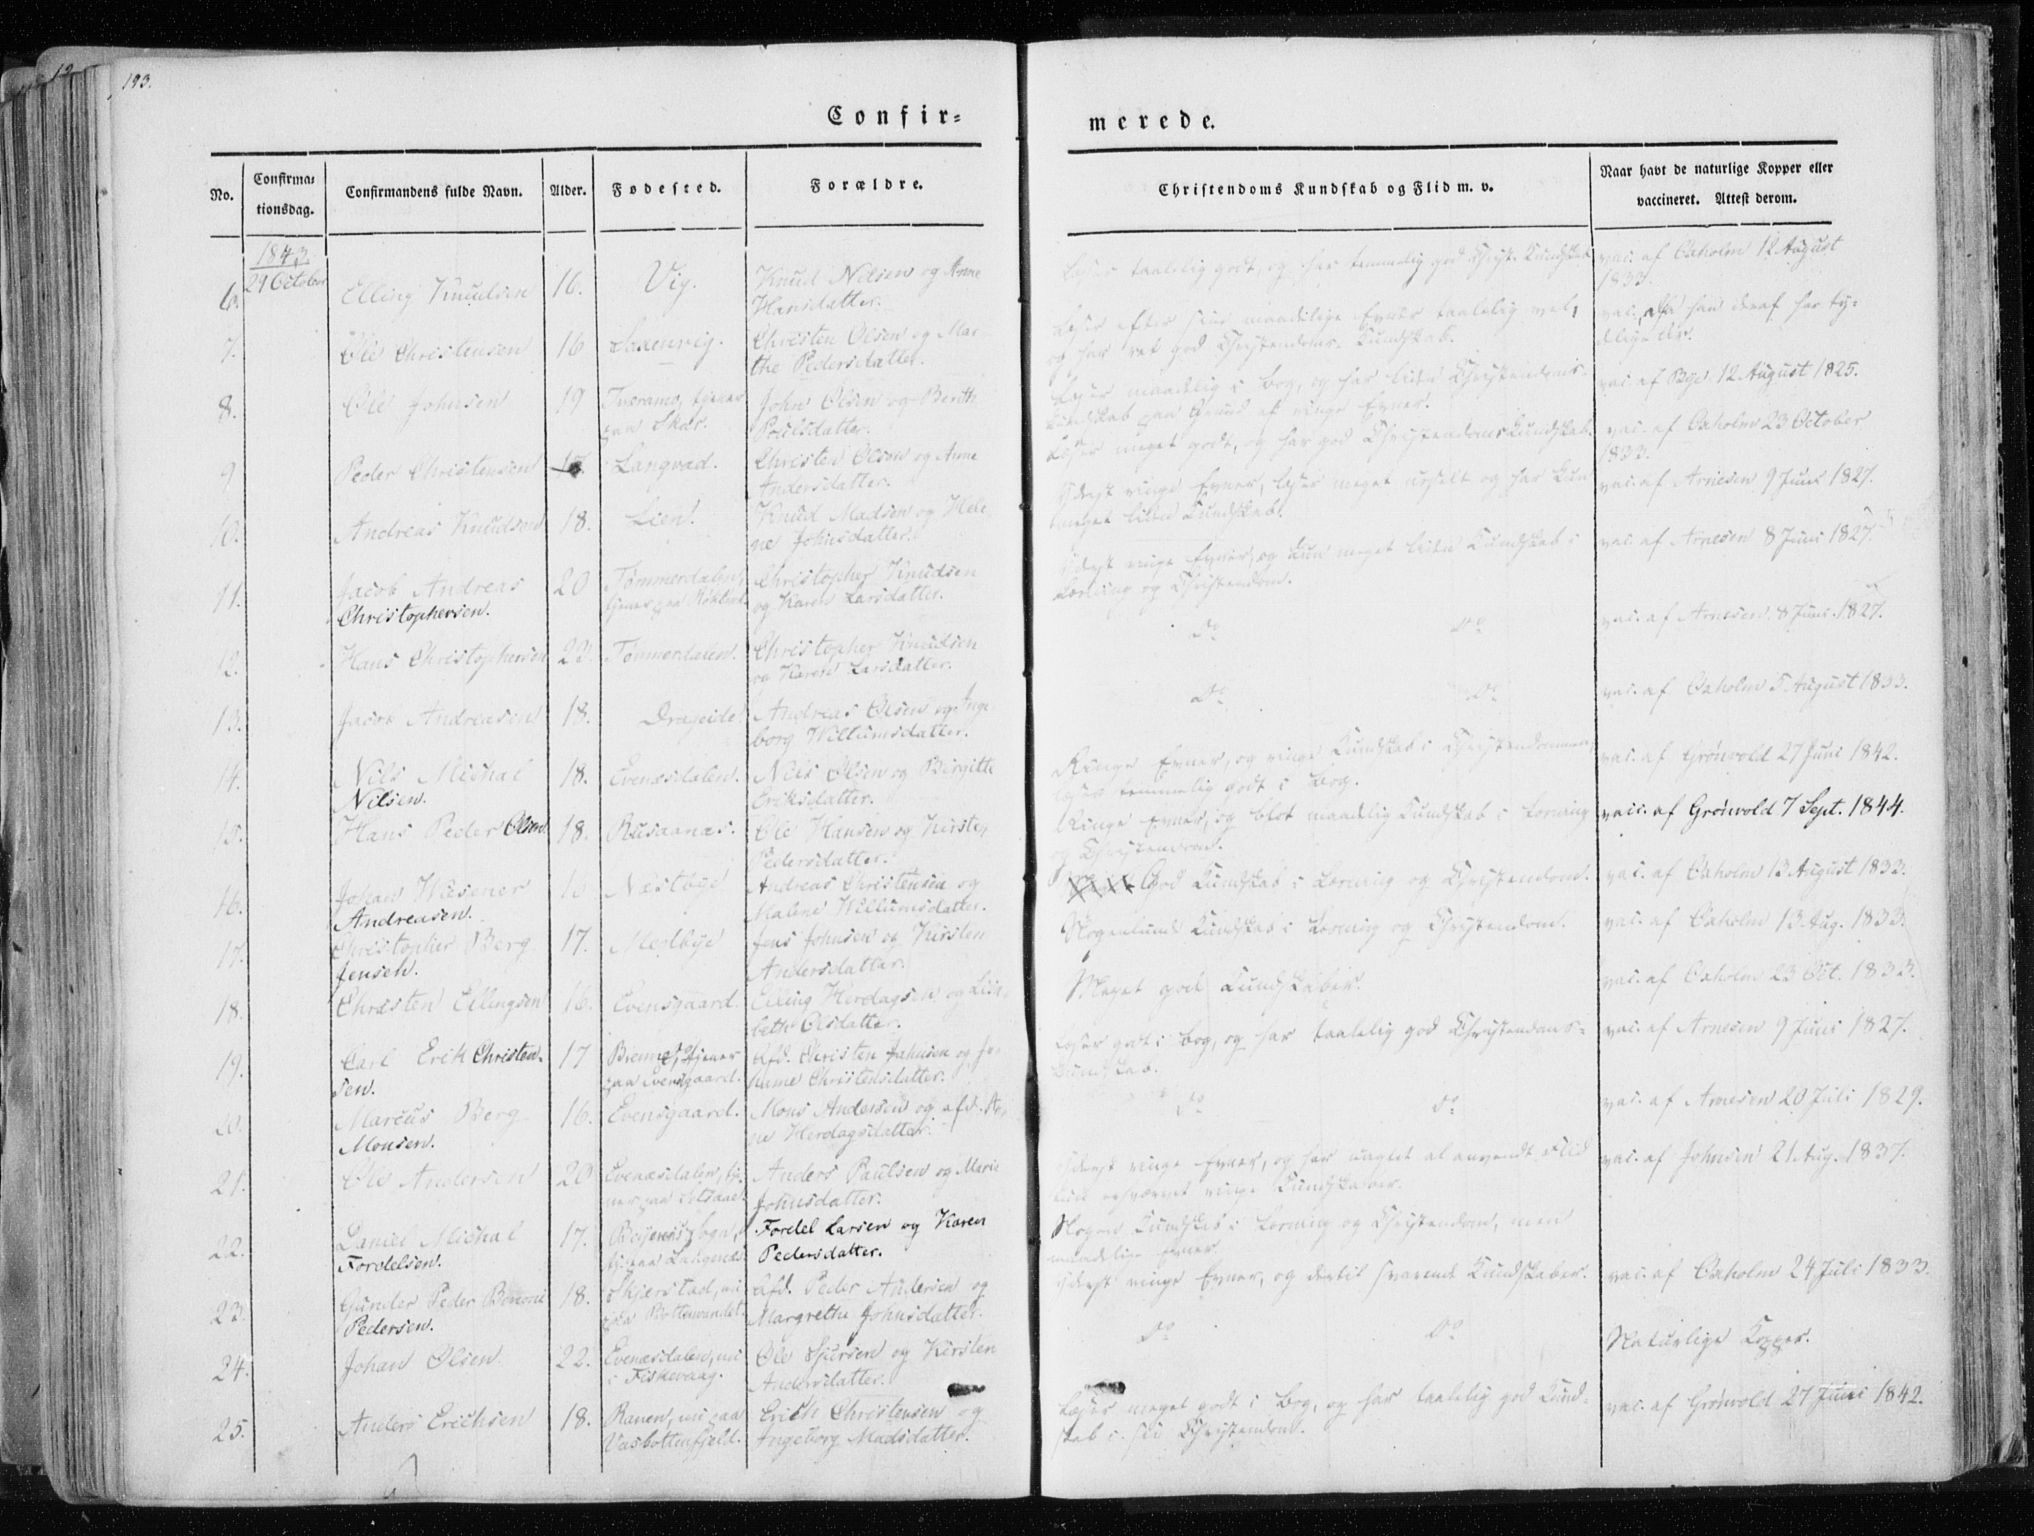 193.
Confir=
merede.
No.
Confirma=
tionsdag.
Confirmandens fulde Navn.
Alder.
Fødested.
Forældre.
Christendoms Kundskab og Flid m. v.
Naar havt de naturlige Kopper eller
vaccineret. Attest derom.
1843.
29 October
6. Elling Knudsen 16. Vig. Knud Nilsen og Anne
Hansdatter.
Læser taalelig godt, og har temmelig god Christ. Kundskab
vac. af Oxholm 12 August
1833.
7. Ole Christensen 16 Saxenvig. Christen Olsen og Mar
the Pedersdatter.
Læser efter sine maadelige Evner taalelig vel,
og har ret god Christendoms Kundskab.
vac., har ty=
delige Ar.
8. Ole Johnsen 19 Tveramo, tjener
paa Skar.
John Olsen og Berith
Poulsdatter.
Læser maadelig i Bog, og har liden Christendoms-
Kundskab paa Grund af ringe Evner.
vac. af Bye 12 August 1825.
9 Peder Christensen Langvad. Christen Olsen og Anne
Andersdatter.
Læser meget godt, og har god Christendoms Kundskab.
vac. af Oxholm 23 October
1833.
10. Andreas Knudsen 18. Lien. Knud Madsen og Hele
ne Johnsdatter.
Yderst ringe Evner, læser meget uselt og har kun
meget liden Kundskab.
vac. af Arnesen 9 Juni 1827.
11. Jacob Andreas
Christophersen.
20 Tømmerdalen,
tjener paa
Christopher Knudsen
og Karen Larsdatter.
Yderst ringe Evner, og kun meget liden Kundskab i
Læsning og Christendom.
vac. af Arnesen 8 Juni 1827.
12. Hans Christophersen 22. Tømmerdalen. Christopher Knudsen
og Karen Larsdatter.
Do Do
vac. af Arnesen 8 Juni 1827.
13. Jacob Andreasen 18. Drageide. Andreas Olsen og Inge
borg Willumsdatter.
Do Do
vac. af Oxholm 5 August 1833.
14. Nils Michal
Nilsen.
18. Evenæsdalen. Niels Olsen og Birgitte
Eriksdatter.
Ringe Evner, og ringe Kundskab i Christendommen,
læser temmelig godt i Bog.
vac. af Grønvold 27 Juni 1842.
15. Hans Peder Olsen 18. Rusaanæs. Ole Hansen og Kirsten
Pedersdatter.
Ringe Evner, og blot maadelig Kundskab i Læsning
og Christendom.
vacc. af Grønvold 7 Sept. 1844.
16. Johan Wisener
Andreasen.
16 Næstbye Andreas Christensen og
Malene Willumsdatter.
God Kundskab i Læsning og Christendom.
vac. af Oxholm 13 August 1833.
17. Christopher Berg
Jensen.
17. Medbye Jens Johnsen og Kirsten
Andersdatter.
Nogenlunde Kundskab i Læsning og Christendom.
vac. af Oxholm 13 Aug. 1833.
18. Christen Ellingsen 16. Evensgaard. Elling Herdagsen og Lisa
beth Olsdatter.
Meget gode Kundskaber.
vac. af Oxholm 23 Oct. 1833.
19. Carl Erik Christen-
sen.
17 Brenne, tjener
paa Evensgaard.
Afd. Christen Johnsen og Jo
hanne Christensdatter.
Læser godt i Bog, og har taalelig god Christendoms=
Kundskab.
vac. af Arnesen 9 Juni 1827.
20. Marcus Berg
Monsen.
16. Evensgaard. Mons Andersen og afd. An
ne Herdagsdatter.
Do Do
vac. af Arnesen 20 Juli 1829.
21. Ole Andersen 20 Evenæsdalen, tje
ner paa
Anders Paulsen og Marie
Johnsdatter.
Yderst ringe Evner, og har uagtet al anvendt Flid
kun erhvervet ringe Kundskaber.
vac. af Johnsen 21 Aug. 1837.
22. Daniel Michal
Fordelsen.
17. Fordel Larsen og Karen
Pedersdatter.
Nogen Kundskab i Læsning og Christendom, men
maadelige Evner.
23. Gunder Peder Benoni
Pedersen.
18. Skjerstad, nu
paa Bottenvandet.
Afd. Peder Andersen og
Margrethe Johnsdatter.
Yderst ringe Evner, og dertil svarende Kundskaber.
vac. af Oxholm 24 Juli 1833.
24. Johan Olsen. 22. Evenæsdalen, nu
i Fiskevaag.
Ole Sjursen og Kirsten
Andersdatter.
Do Do
Naturlige Kopper.
25. Anders Erichsen 18. Ranen, nu paa
Vasbottenfjeld.
Erich Christensen og
Ingeborg Madsdatter.
Læser meget godt i Bog, og har taalelig god Kund-
skab i sin Christendom.
vac. af Grønvold 27 Juni 1842.